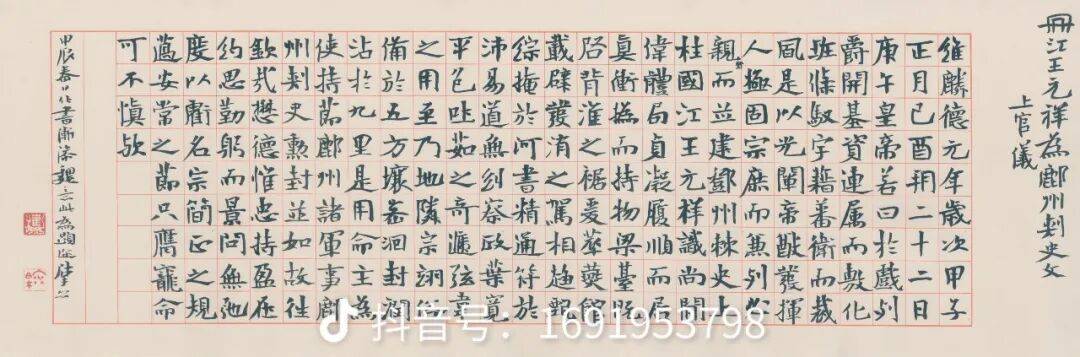 冊江王元祥為鄜州刺史文
上官儀
維麟德元年歲次甲子
正月己酉朔二十二日
庚午皇帝若曰於戲列
爵開基資連属而敷化
班條馭字藉蕃衛而裁
風是以光闡帝猷發揮
人極固宗庶而兼列分
親而並建鄧州棘史上
柱國江王元祥識尚閒
偉體局貞凝履順而居
真衝撝而持物梁臺既
啓背淮之裾爰萃館
載辟叢淯之駕相趨
綜掩於河書精通符於
沛易道無糾察政葉竟
平邑吐茹之奇滙弦韋
之用至乃地隣宗翊
備於五方壤洄封潤
沾於九里是用命主為
使持節鄜州諸軍事鄜
州刺史勲封並如故往
欽哉懋德惟忠持盈在
約思勤躬而景問無弛
度以衢名宗簡正之規
蘊安常之節只膺寵命
可不慎欤
甲辰春日化書
抖音号：1691953798